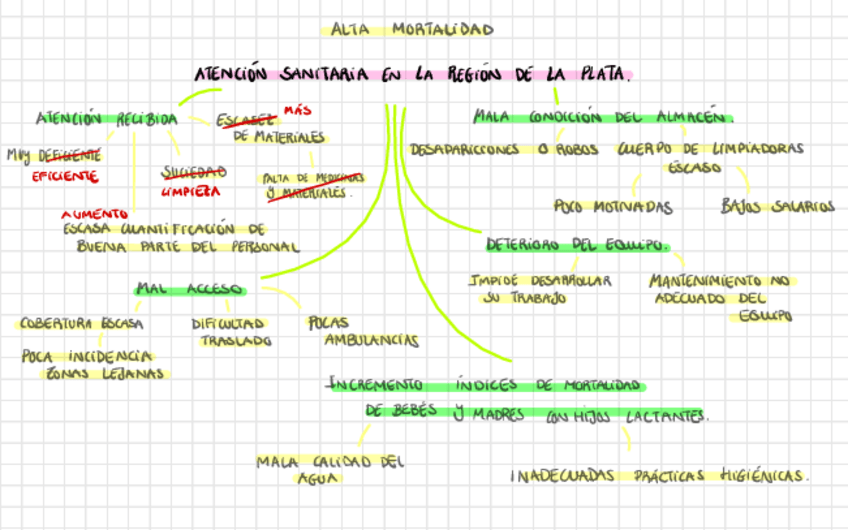 ALTA MORTALIDAD
ATENCIÓN SANITARIA EN LA REGIÓN DE LA PLATA.
ATENCIÓN RECIBIDA
MUY DEFICIENTE
EFICIENTE
SUCIEDAD
LIMPIEZA
ESCASEZ MÁS
DE MATERIALES
FALTA DE MEDICINAS
Y MATERIALES.
AUMENTO
ESCASA CUANTIFICACIÓN DE
BUENA PARTE DEL PERSONAL
MALA CONDICIÓN DEL ALMACÉN.
DESAPARICIONES O ROBOS
CUERPO DE LIMPIADORAS
ESCASO
POCO MOTIVADAS
BAJOS SALARIOS
DETERIORO DEL EQUIPO.
IMPIDE DESARROLLAR
SU TRABAJO
MANTENIMIENTO NO
ADECUADO DEL
EQUIPO
MAL ACCESO
COBERTURA ESCASA
POCA INCIDENCIA
ZONAS LEJANAS
DIFICULTAD
TRASLADO
POCAS
AMBULANCIAS
INCREMENTO ÍNDICES DE MORTALIDAD
DE BEBÉS Y MADRES CON HIJOS LACTANTES.
MALA CALIDAD DEL
AGUA
INADECUADAS PRÁCTICAS HIGIÉNICAS.